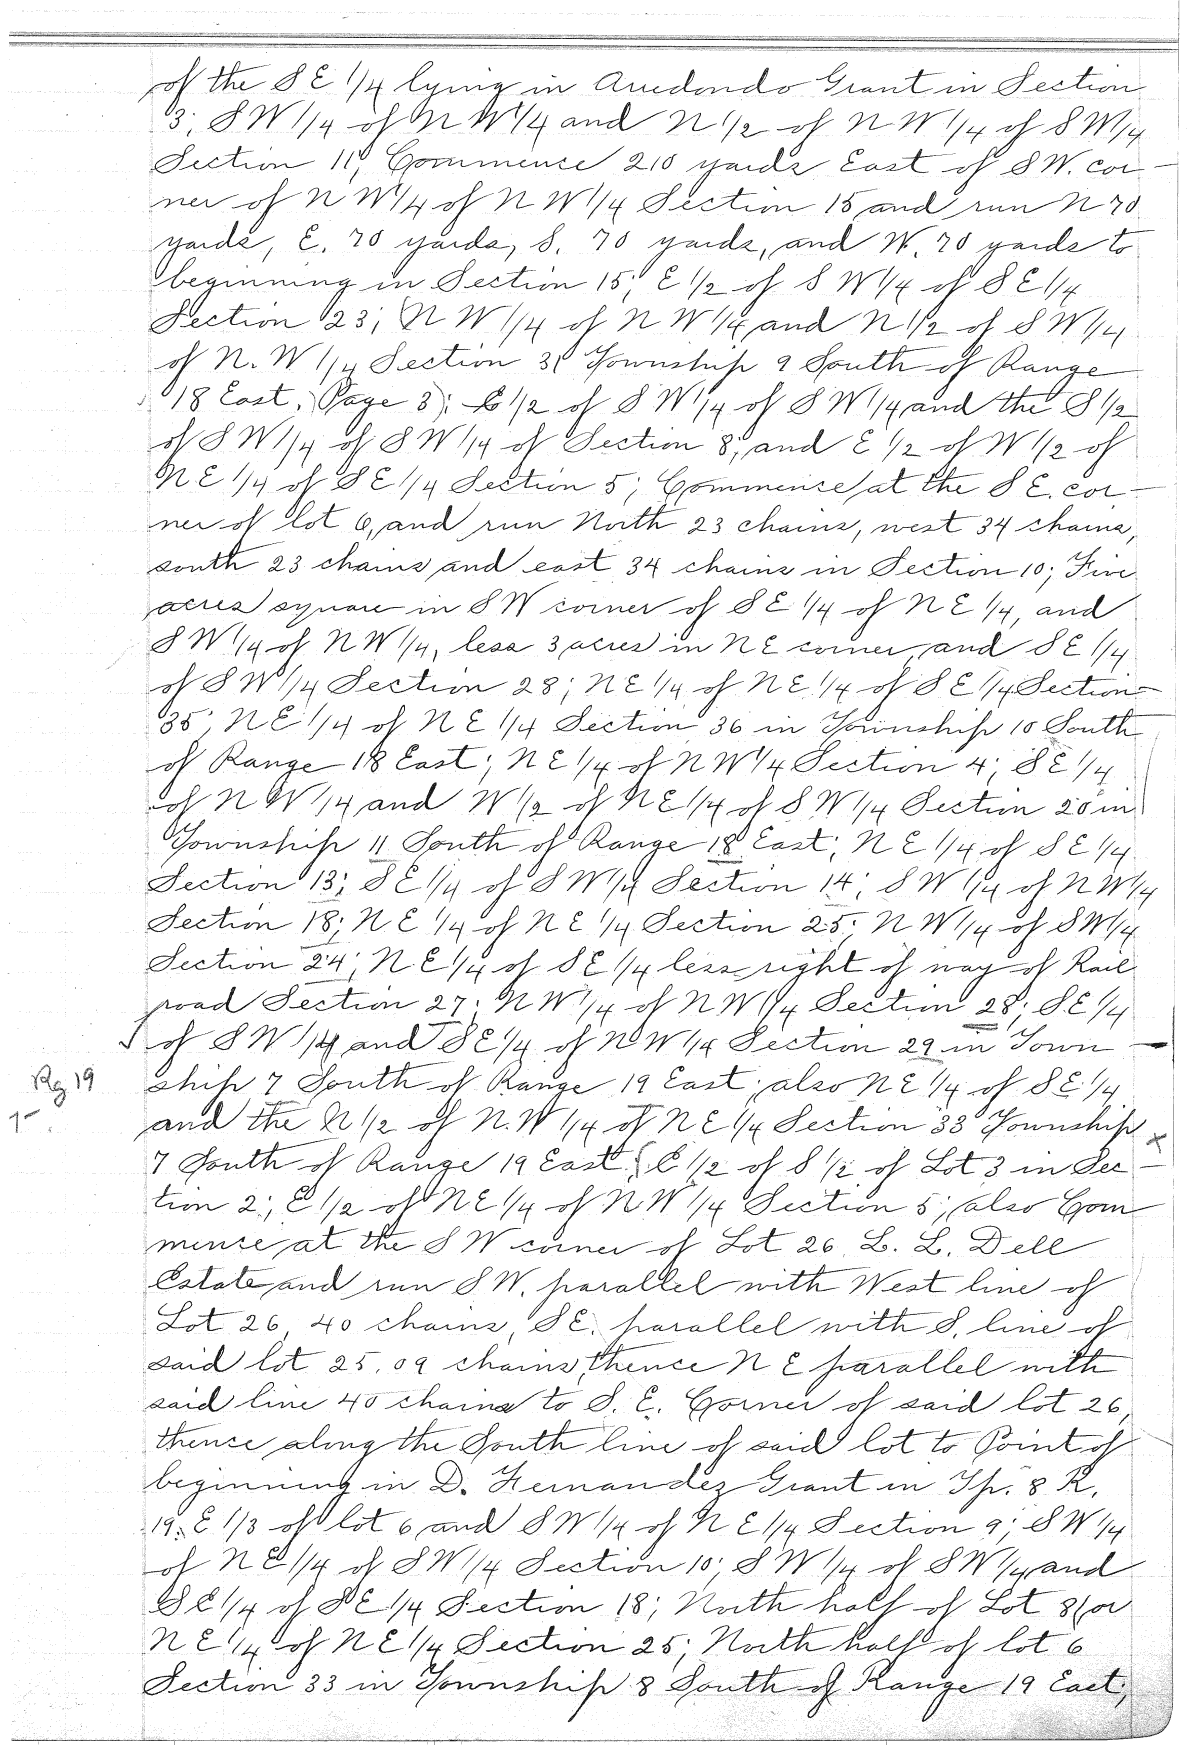 of the SE 1/4 lying in Arredondo Grant in Section
3; SW 1/4 of NW 1/4 and N 1/2 of NW 1/4 of SW 1/4
Section 11; Commence 210 yards East of SW. cor-
ner of NW 1/4 of NW 1/4 Section 15 and run N 70
yards, E. 70 yards, S. 70 yards, and W. 70 yards to
beginning in Section 15; E 1/2 of SW 1/4 of SE 1/4
Section 23; NW 1/4 of NW 1/4 and N 1/2 of SW 1/4
of N.W 1/4 Section 31 Township 9 South of Range
18 East. (Page 3); E 1/2 of SW 1/4 of SW 1/4 and the S 1/2
of SW 1/4 of SW 1/4 of Section 8; and E 1/2 of W 1/2 of
NE 1/4 of SE 1/4 Section 5; Commence at the SE. cor-
ner of lot 6, and run North 23 chains, west 34 chains,
south 23 chains and east 34 chains in Section 10; Five
acres square in SW corner of SE 1/4 of NE 1/4, and
SW 1/4 of NW 1/4, less 3 acres in NE corner, and SE 1/4
of SW 1/4 Section 28; NE 1/4 of NE 1/4 of SE 1/4 Section
35; NE 1/4 of NE 1/4 Section 36 in Township 10 South
of Range 18 East; NE 1/4 of NW 1/4 Section 4; SE 1/4
of NW 1/4 and W 1/2 of NE 1/4 of SW 1/4 Section 20 in
Township 11 South of Range 18 East; NE 1/4 of SE 1/4
Section 13; SE 1/4 of SW 1/4 Section 14; SW 1/4 of NW 1/4
Section 18; NE 1/4 of NE 1/4 Section 25; NW 1/4 of SW 1/4
Section 24; NE 1/4 of SE 1/4 less right of way of Rail
road Section 27; NW 1/4 of NW 1/4 Section 28; SE 1/4
of SW 1/4 and SE 1/4 of NW 1/4 Section 29 in Town-
Rg 19 ship 7 South of Range 19 East; also NE 1/4 of SE 1/4
7- and the N 1/2 of N.W 1/4 of NE 1/4 Section 33 Township x
7 South of Range 19 East; E 1/2 of S 1/2 of Lot 3 in Sec-
tion 2; E 1/2 of NE 1/4 of NW 1/4 Section 5; also Com
mence at the SW corner of Lot 26 L. L. Dell
Estate and run SW. parallel with West line of
Lot 26, 40 chains, SE. parallel with S. line of
said lot 25.09 chains, thence NE parallel with
said line 40 chains to S. E. Corner of said lot 26,
thence along the South line of said lot to Point of
beginning in D. Hernandez Grant in Tp. 8 R.
19; E 1/3 of lot 6 and SW 1/4 of NE 1/4 Section 9; SW 1/4
of NE 1/4 of SW 1/4 Section 10; SW 1/4 of SW 1/4 and
SE 1/4 of SE 1/4 Section 18; North half of Lot 8 (or
NE 1/4 of NE 1/4 Section 25; North half of lot 6
Section 33 in Township 8 South of Range 19 East;